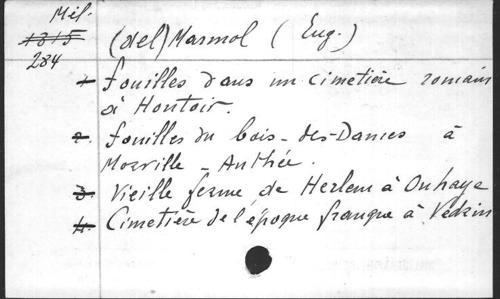 Mil.
1315
284
(del) Marmol ( Eug.)
1. fouilles dans un cimetière romain
à Hontoir.
2. fouilles du bois - des - Dames à
Morville - Anthée.
3. Vieille ferme de Herlem à Onhaye
4. Cimetière de l'époque franque à Vedrin